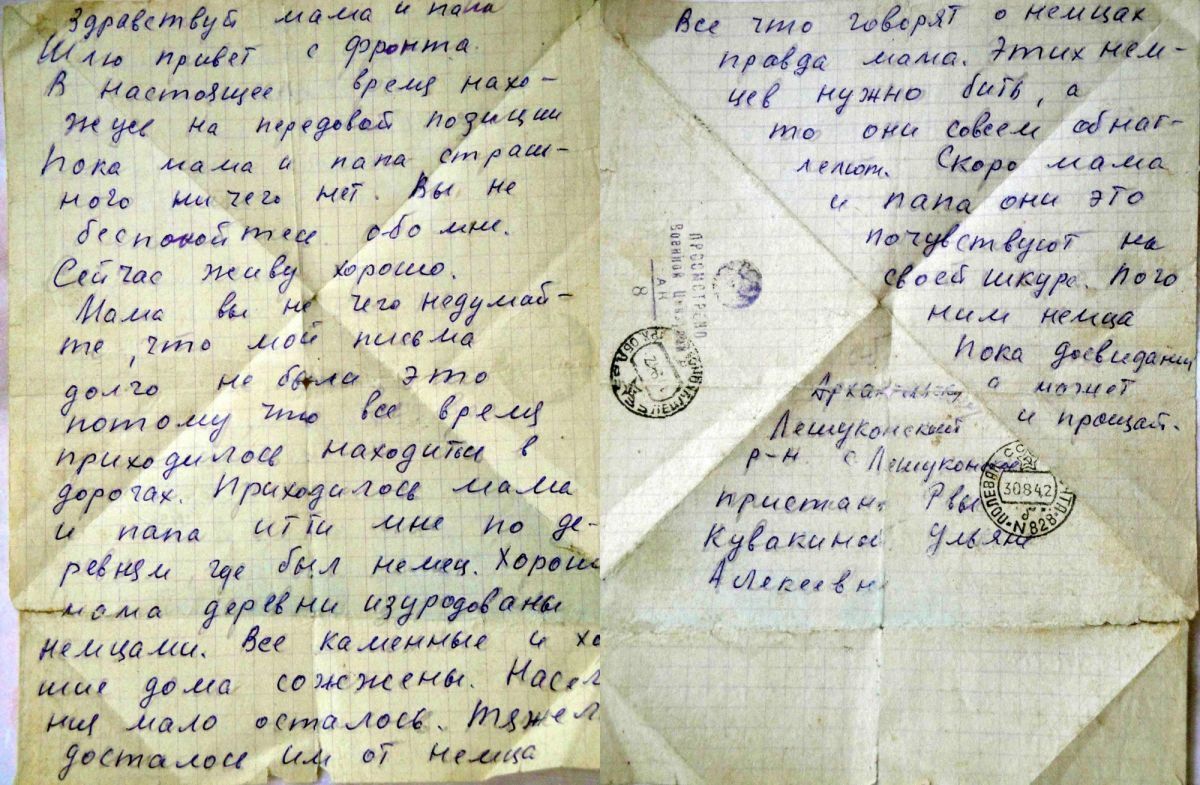 Здравствуй мама и папа
Шлю привет с фронта.
В настоящее время нахо-
жуся на передовой позиции
Пока мама и папа страш-
ного ни чего нет. Вы не
беспокойтеся обо мне.
Сейчас живу хорошо.
Мама вы не чего недумай-
те, что мои письма
долго не была, это
потому что все время
приходилось находиться в
дорогах. Приходилось мама
и папа итти мне по де-
ревням, где был немец. Хорош
мама деревни изуродованы
немцами. Все каменные и хо
шие дома сожжены. Насел
ния мало осталось. Тяжел
досталось им от немца
Все что говорят о немцах
правда мама. Этих нем-
цев нужно бить, а
то они совсем обнаг-
леют. Скоро мама
и папа они это
почувствуют на
своей шкуре. Пого
ним немца
Пока досвидания
а может
и прощай.
Лешуконский
р-н. с Лешуконское
пристань
Кувакиной Ульяне
Алекеевн
ПРОСМОТРЕНО
Военной Цензурой
8
ПОЛЕВАЯ
30842
N 828